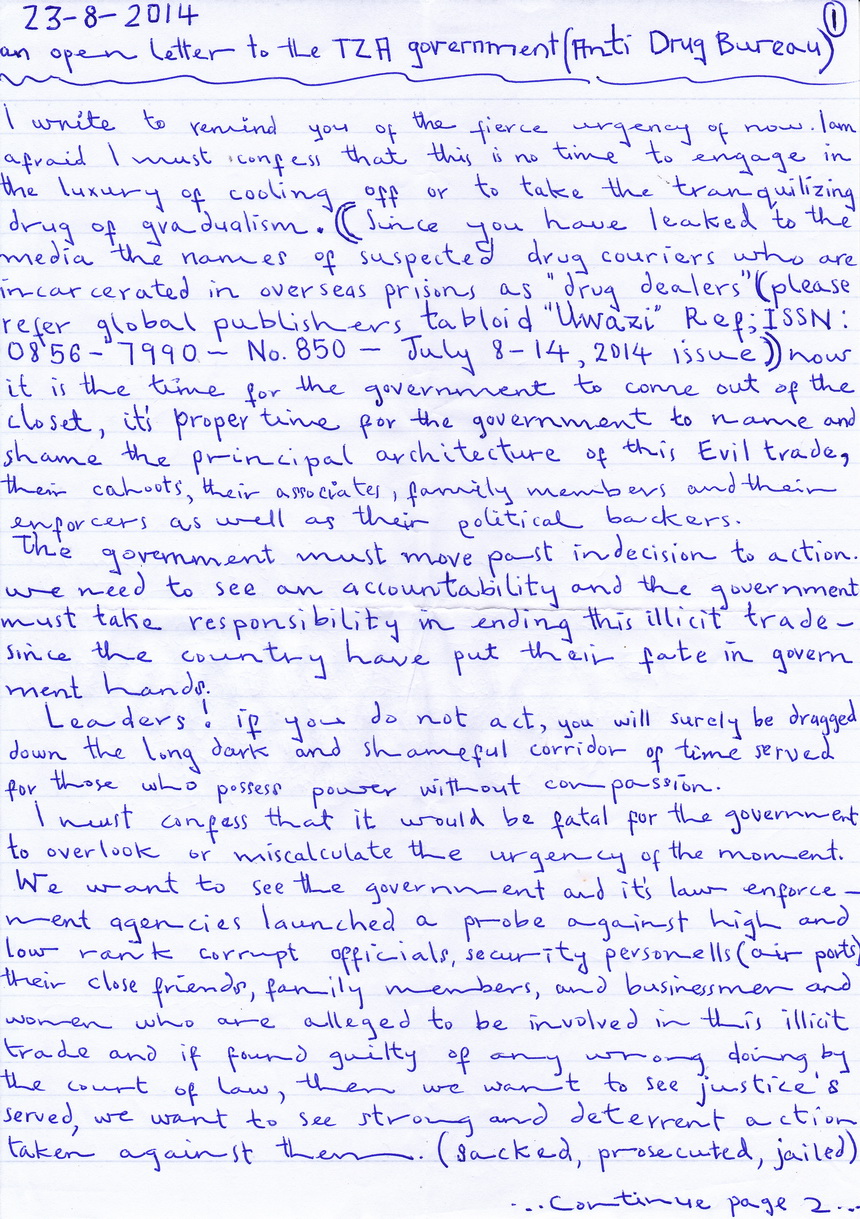 23-8-2014
1
an open letter to the TZA government (Anti Drug Bureau)
I write to remind you of the fierce urgency of now. Iam
afraid I must confess that this is no time to engage in
the luxury of cooling off or to take the tranquilizing
drug of gradualism. (Since you have leaked to the
media the names of suspected drug couriers who are
incarcerated in overseas prisons as "drug dealers" (please
refer global publishers tabloid "Uwazi" Ref; ISSN:
0856-7990- No. 850 - July 8-14, 2014 issue)) now
it is the time for the government to come out of the
closet, it's proper time for the government to name and
shame the principal architecture of this Evil trade,
their cahoots, their associates, family members and their
enforcers as well as their political backers.
The government must move past indecision to action.
we need to see an accountability and the government
must take responsibility in ending this illicit trade-
since the country have put their fate in govern
ment hands.
Leaders! if you do not act, you will surely be dragged
down the long dark and shameful corridor of time served
for those who possess power without compassion.
I must confess that it would be fatal for the government
to overlook or miscalculate the urgency of the moment.
We want to see the government and it's law enforce-
ment agencies launched a probe against high and
low rank corrupt officials, security personells (air ports)
their close friends, family members, and businessmen and
women who are alleged to be involved in this illicit
trade and if found guilty of any wrong doing by
the court of law, then we want to see justice's
served, we want to see strong and deterrent action
taken against them. (Sacked, prosecuted, jailed)
...Continue page 2...